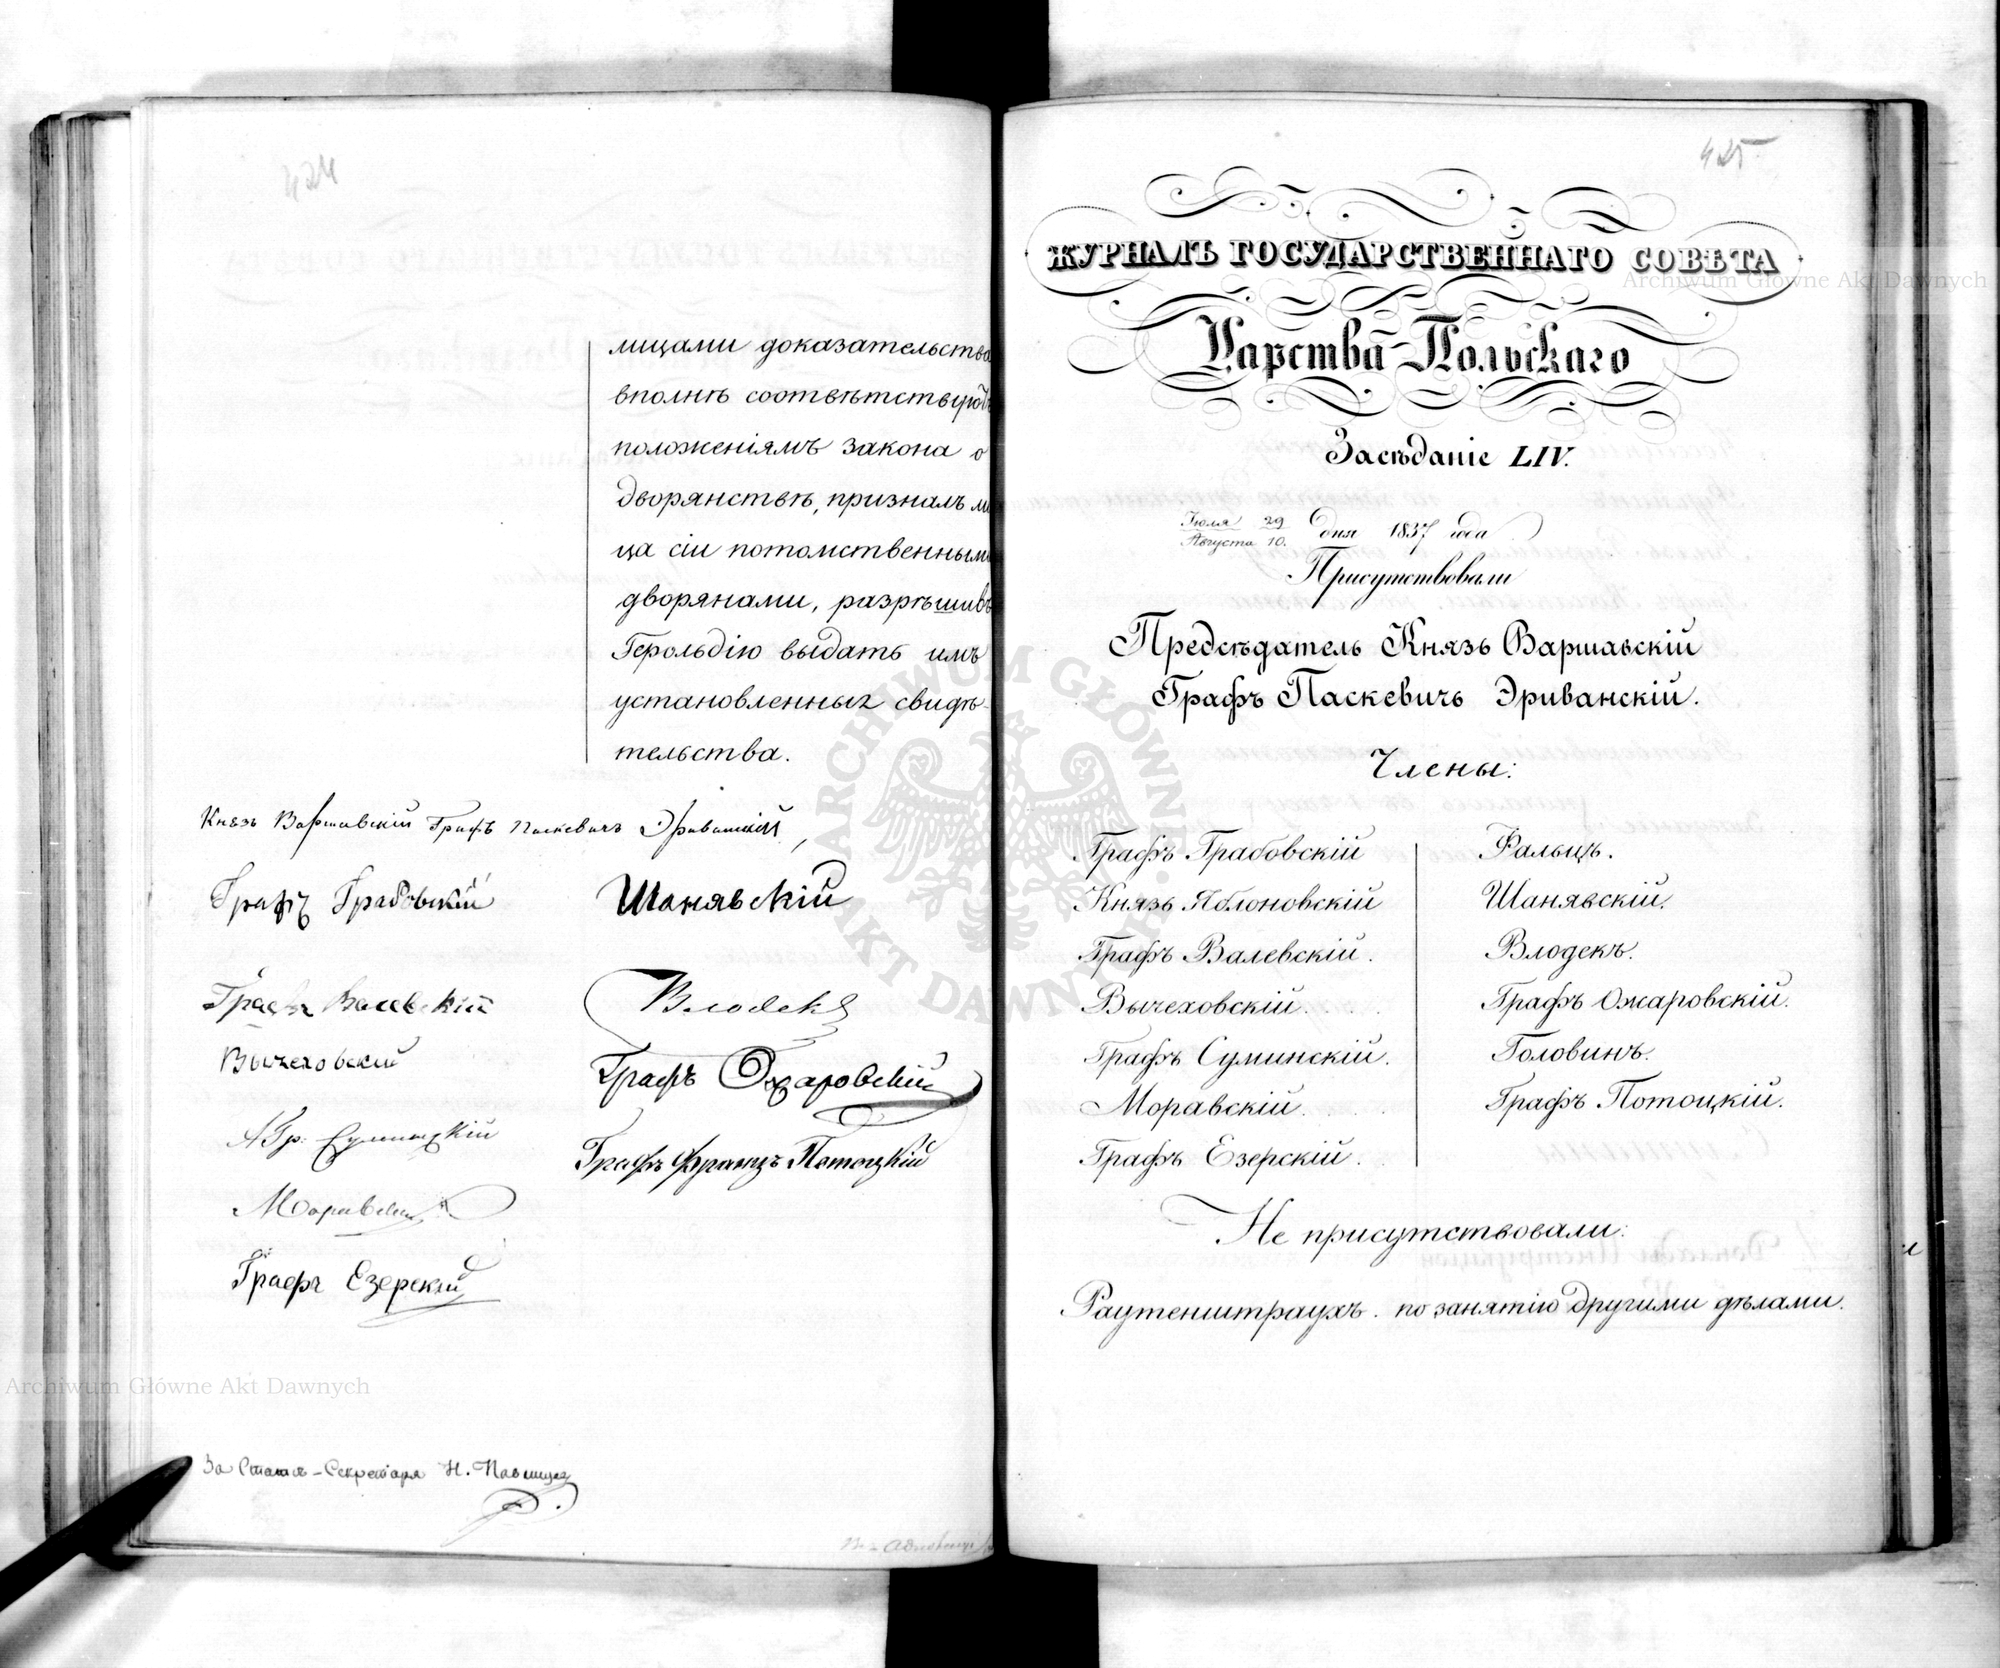 424
лицами доказательства
вполнѣ соотвѣтствуютъ
положеніямъ закона о
дворянствѣ, призналъ ли
ца сіи потомственными
дворянами, разрѣшивъ
Герольдію выдать имъ
установленныя свидѣ-
тельства.
Князь Варшавскій Графъ Паскевичъ Эриванскій,
Графъ Грабовскій
Шанявскій
Графъ Валевскій
Влодекъ
Вычеховскій
Графъ Ожаровскій
Гр: Суминскій
Графъ Францъ Потоцкій
Моравскій
Графъ Езерскій
За Статсъ-Секретаря Н. Павлищев
425
ЖУРНАЛЪ ГОСУДАРСТВЕННАГО СОВѢТА
Царства Польскаго
Засѣданіе LIV.
Іюля 29 / Августа 10. дня 1837 года
Присутствовали
Предсѣдатель Князь Варшавскій
Графъ Паскевичъ Эриванскій.
Члены:
Графъ Грабовскій
Князь Яблоновскій
Графъ Валевскій.
Вычеховскій.
Графъ Суминскій.
Моравскій.
Графъ Езерскій.
Фальцъ.
Шанявскій.
Влодекъ.
Графъ Ожаровскій.
Головинъ.
Графъ Потоцкій.
Не присутствовали:
Раутенштраухъ. по занятію другими дѣлами.
Archiwum Główne Akt Dawnych
ARCHIWUM GŁÓWNE AKT DAWNYCH
Archiwum Główne Akt Dawnych